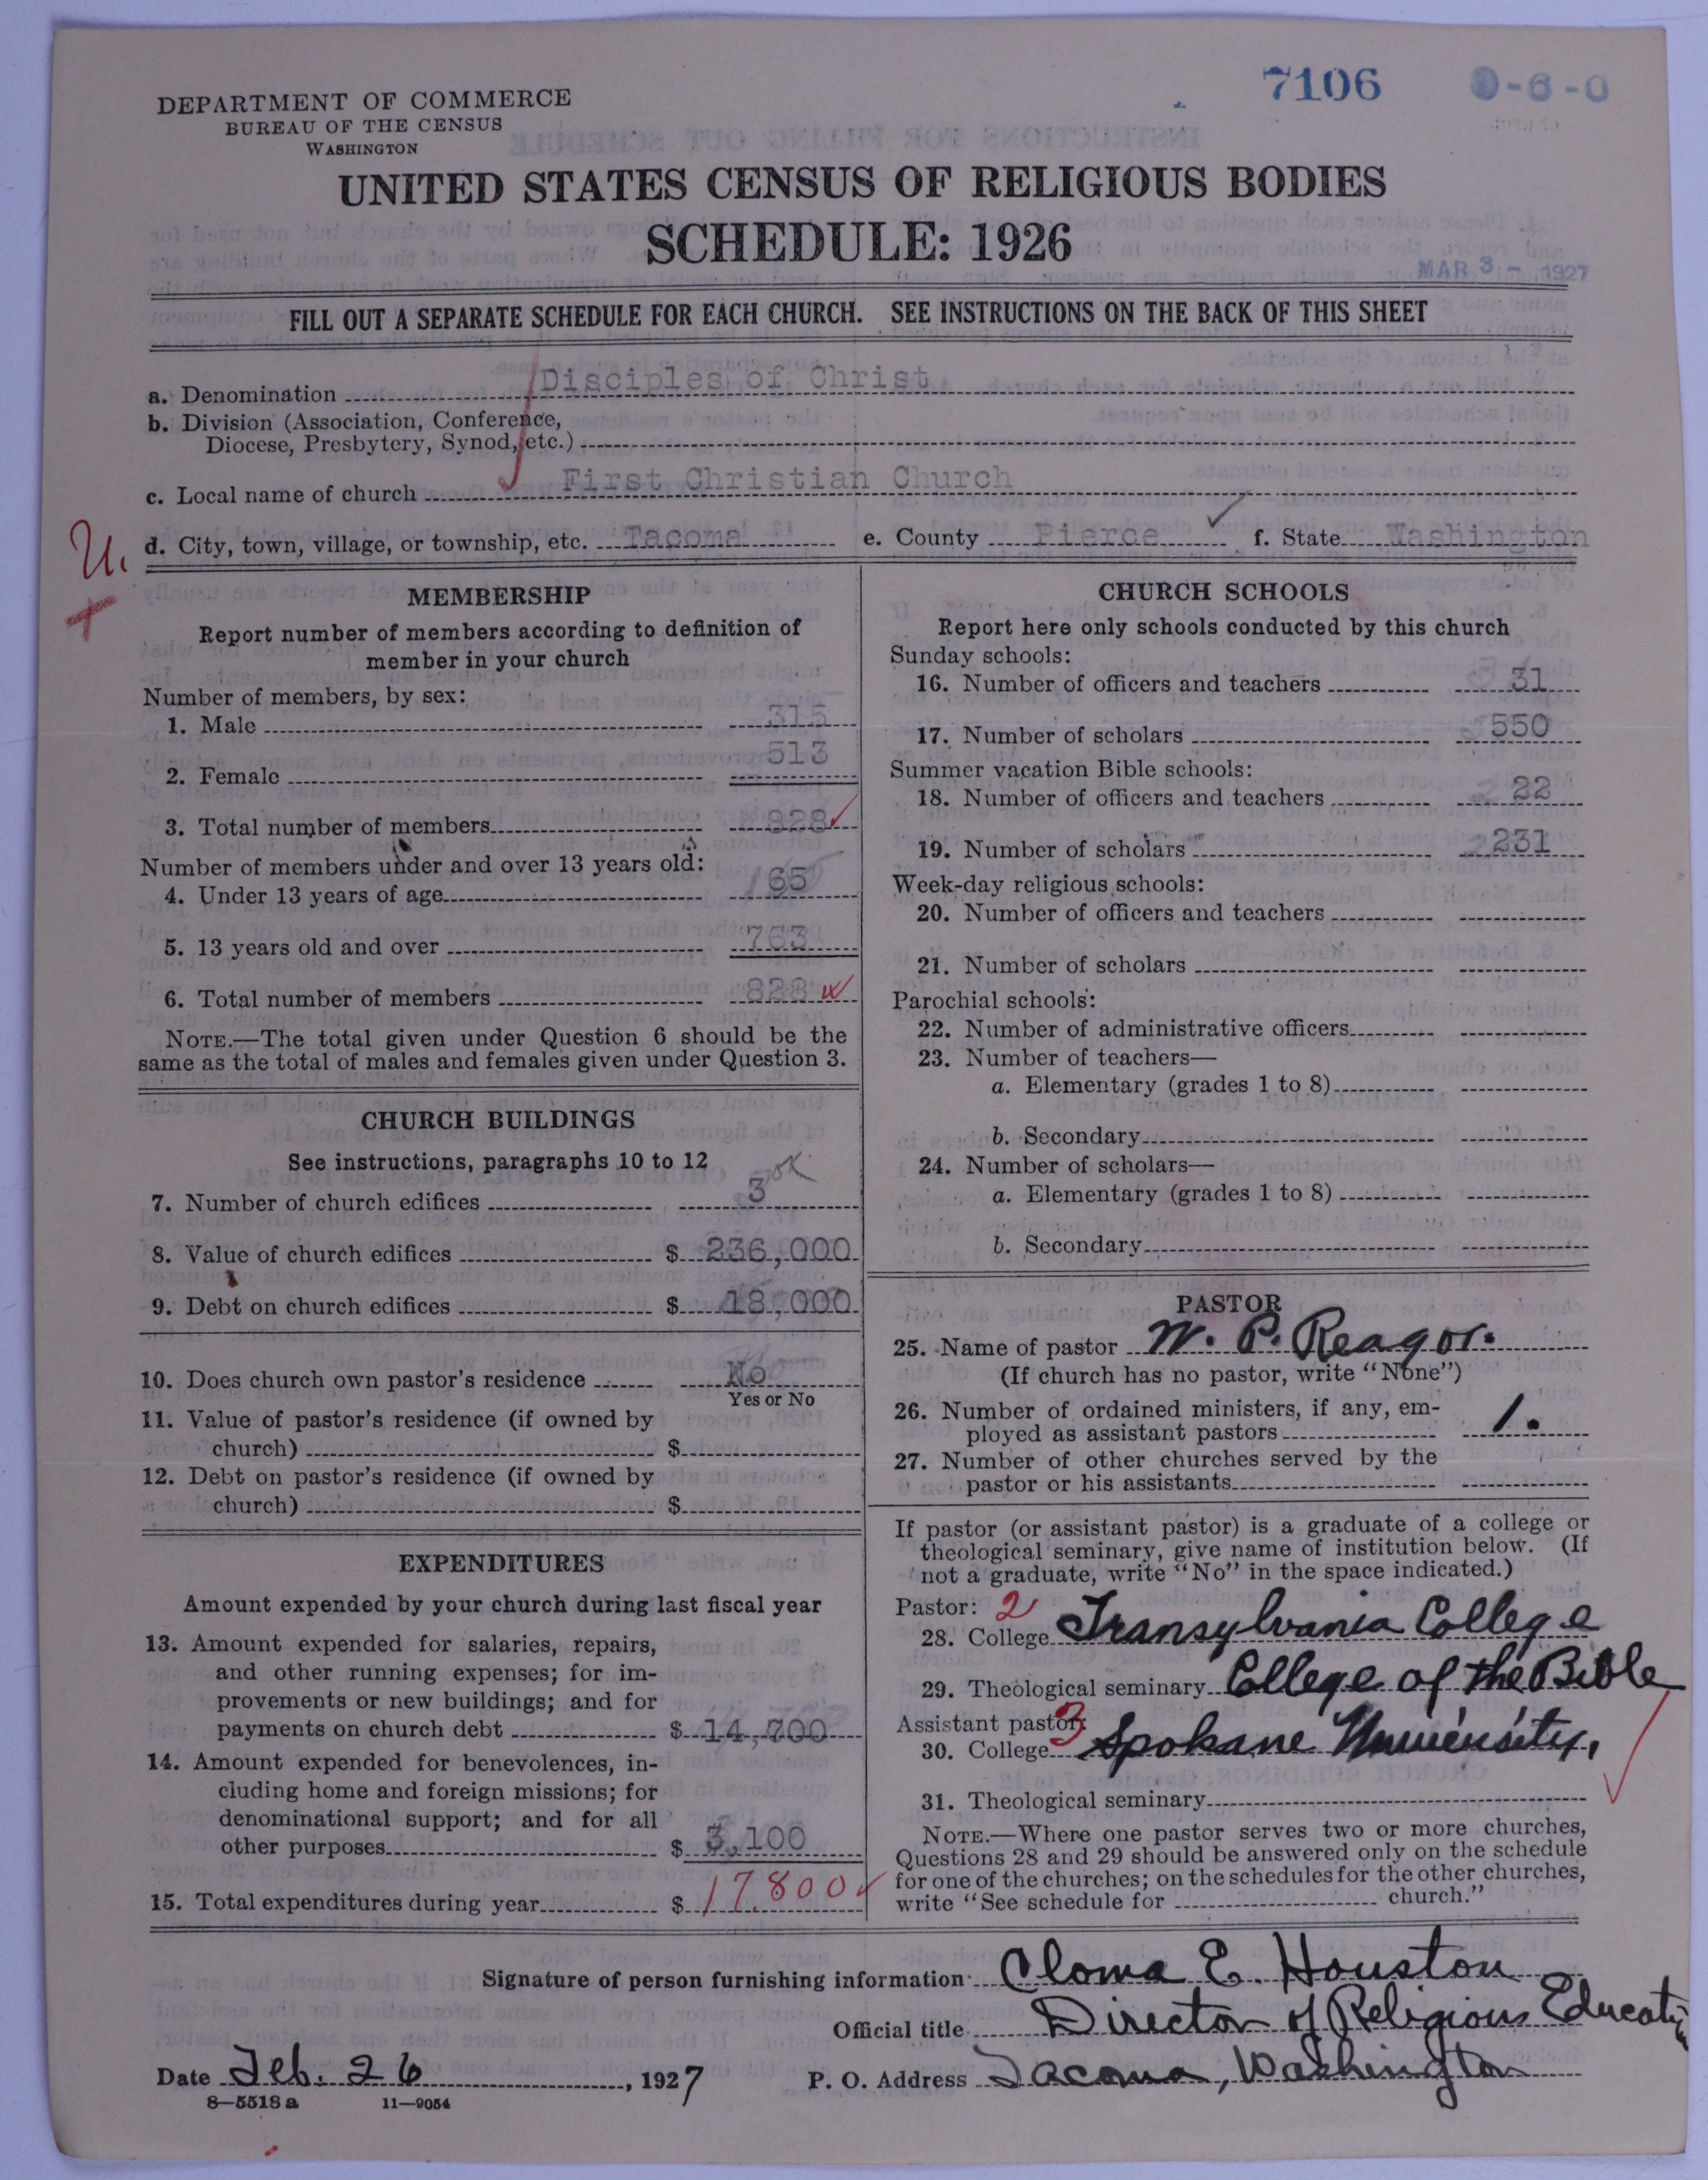 7106
0-6-0
DEPARTMENT OF COMMERCE
BUREAU OF THE CENSUS
WASHINGTON
UNITED STATES CENSUS OF RELIGIOUS BODIES
SCHEDULE: 1926
MAR 3 - 1927
FILL OUT A SEPARATE SCHEDULE FOR EACH CHURCH. SEE INSTRUCTIONS ON THE BACK OF THIS SHEET
a. Denomination Disciples of Christ
b. Division (Association, Conference,
Diocese, Presbytery, Synod, etc.)
c. Local name of church First Christian Church
d. City, town, village, or township, etc. Tacoma e. County Pierce f. State Washington
U.
MEMBERSHIP
Report number of members according to definition of
member in your church
Number of members, by sex:
1. Male 315
2. Female 513
3. Total number of members 828
Number of members under and over 13 years old:
4. Under 13 years of age 65
5. 13 years old and over 763
6. Total number of members 828
NOTE.—The total given under Question 6 should be the
same as the total of males and females given under Question 3.
CHURCH BUILDINGS
See instructions, paragraphs 10 to 12
7. Number of church edifices 3 ok
8. Value of church edifices $ 236,000
9. Debt on church edifices $ 18,000
10. Does church own pastor's residence No
Yes or No
11. Value of pastor's residence (if owned by
church) $
12. Debt on pastor's residence (if owned by
church) $
EXPENDITURES
Amount expended by your church during last fiscal year
13. Amount expended for salaries, repairs,
and other running expenses; for im-
provements or new buildings; and for
payments on church debt $ 14,700
14. Amount expended for benevolences, in-
cluding home and foreign missions; for
denominational support; and for all
other purposes $ 3,100
15. Total expenditures during year $ 17800
CHURCH SCHOOLS
Report here only schools conducted by this church
Sunday schools:
16. Number of officers and teachers 31
17. Number of scholars 550
Summer vacation Bible schools:
18. Number of officers and teachers 22
19. Number of scholars 231
Week-day religious schools:
20. Number of officers and teachers
21. Number of scholars
Parochial schools:
22. Number of administrative officers
23. Number of teachers—
a. Elementary (grades 1 to 8)
b. Secondary
24. Number of scholars—
a. Elementary (grades 1 to 8)
b. Secondary
PASTOR
25. Name of pastor W. P. Reagor.
(If church has no pastor, write "None")
26. Number of ordained ministers, if any, em-
ployed as assistant pastors 1.
27. Number of other churches served by the
pastor or his assistants
If pastor (or assistant pastor) is a graduate of a college or
theological seminary, give name of institution below. (If
not a graduate, write "No" in the space indicated.)
Pastor: 2
28. College Transylvania College
29. Theological seminary College of the Bible
Assistant pastor: 3
30. College Spokane University,
31. Theological seminary
NOTE.—Where one pastor serves two or more churches,
Questions 28 and 29 should be answered only on the schedule
for one of the churches; on the schedules for the other churches,
write "See schedule for church."
Signature of person furnishing information Cloma E. Houston
Official title Director of Religious Education
Date Feb. 26, 1927 P. O. Address Tacoma, Washington
8—5518 a 11—9054